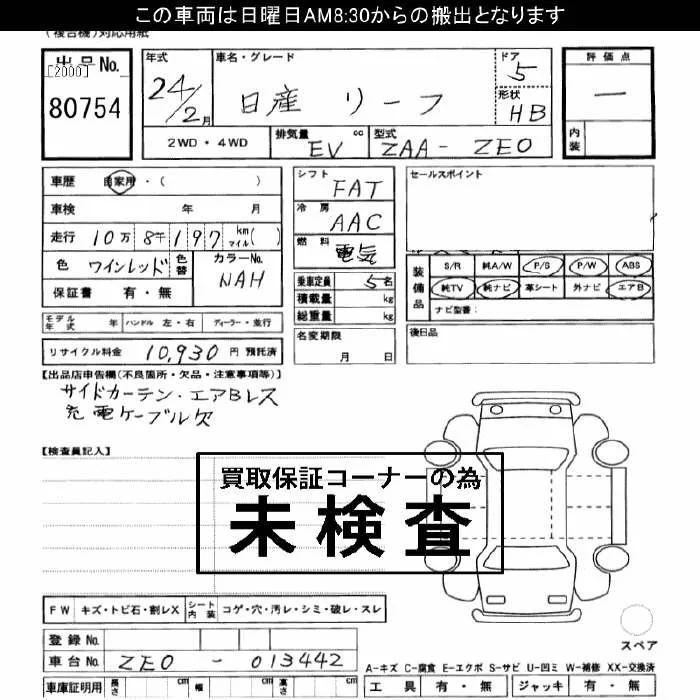 この車両は日曜日AM8:30からの搬出となります
(複合機)対応用紙
出品No.
[2000]
80754
年式
24/2月
車名・グレード
日産 リーフ
ドア
5
形状
HB
評価点
ー
内装
2WD・4WD
排気量 cc
EV
型式
ZAA-ZE0
車歴 自家用・( )
車検 年 月
走行 10万 8千 197 km マイル( )
色 ワインレッド 色替 カラーNo. NAH
保証書 有・無
シフト FAT
冷房 AAC
燃料 電気
乗車定員 5名
積載量 kg
総重量 kg
名変期限
月 日
セールスポイント
装備品
S/R 純A/W P/S P/W ABS
純TV 純ナビ 革シート 外ナビ エアB
ナビ型番:
後日品
モデル年式 年 ハンドル 左・右 ディーラー・並行
リサイクル料金 10,930 円 預託済
【出品店申告欄(不良箇所・欠品・注意事項等)】
サイドカーテン・エアBレス
充電ケーブル欠
【検査員記入】
買取保証コーナーの為
未検査
FW キズ・トビ石・割レX シート内装 コゲ・穴・汚レ・シミ・破レ・スレ
登録No.
車台No. ZE0-013442
車庫証明用 長さ cm 幅 cm 高さ cm
スペア
A-キズ C-腐食 E-エクボ S-サビ U-凹ミ W-補修 XX-交換済
工具 有・無 ジャッキ 有・無